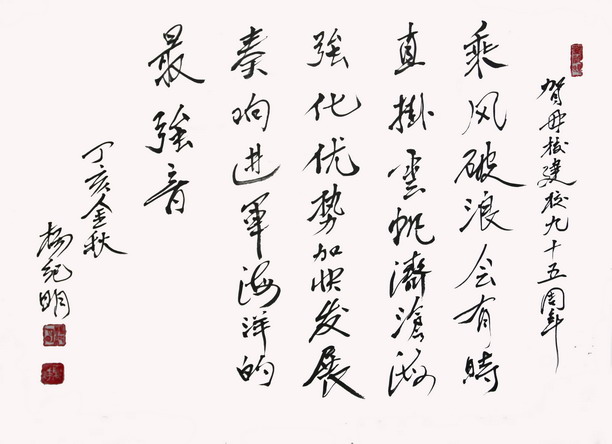 贺母校建校九十五周年
乘风破浪会有時
直掛雲帆濟滄海
強化优势加快发展
奏响进军海洋的
最強音
丁亥金秋
杨纪明